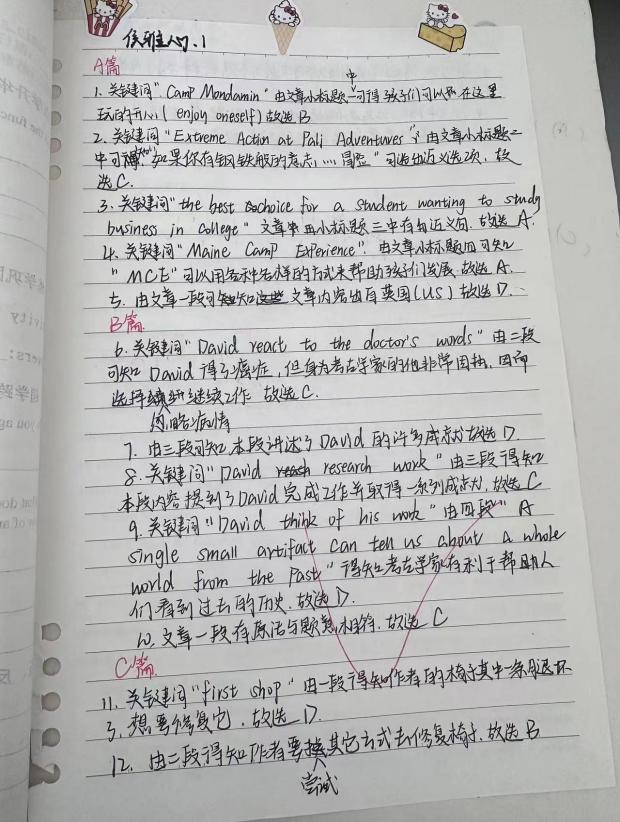 A篇
1. 关键词"Camp Mondamin"由文章小标题一中可得孩子们可以在这里
玩的开心(enjoy oneself)故选B
2. 关键词"Extreme Action at Pali Adventures"由文章小标题二
中可得"如果你有钢铁般的意志....冒险"可选出近义选项,故
选C.
3. 关键词"the best choice for a student wanting to study
business in College"文章中小标题三中存在近义句.故选A.
4. 关键词"Maine Camp Experience".由文章小标题四可知
"MCE"可以用各种各样的方式来帮助孩子们发展.故选A.
5. 由文章一段可知文章内容出自英国(US)故选D.
B篇
6. 关键词"David react to the doctor's words"由二段
可知David得了癌症,但身为考古学家的他非常困扰.因而
选择忽略病情继续工作 故选C.
7. 由三段可知本段讲述了David的许多成就故选D.
8. 关键词"David research work"由三段得知
本段内容提到了David完成工作并取得一系列成就.故选C
9. 关键词"David think of his work"由四段"A
single small artifact can tell us about a whole
world from the Past"得知考古学家有利于帮助人
们看到过去的历史.故选D.
10. 文章一段有原话与题意相符.故选C
C篇
11. 关键词"first shop"由一段得知作者的椅子其中一条腿坏
了,想要修复它.故选D.
12. 由二段得知作者要尝试其它方式去修复椅子.故选B